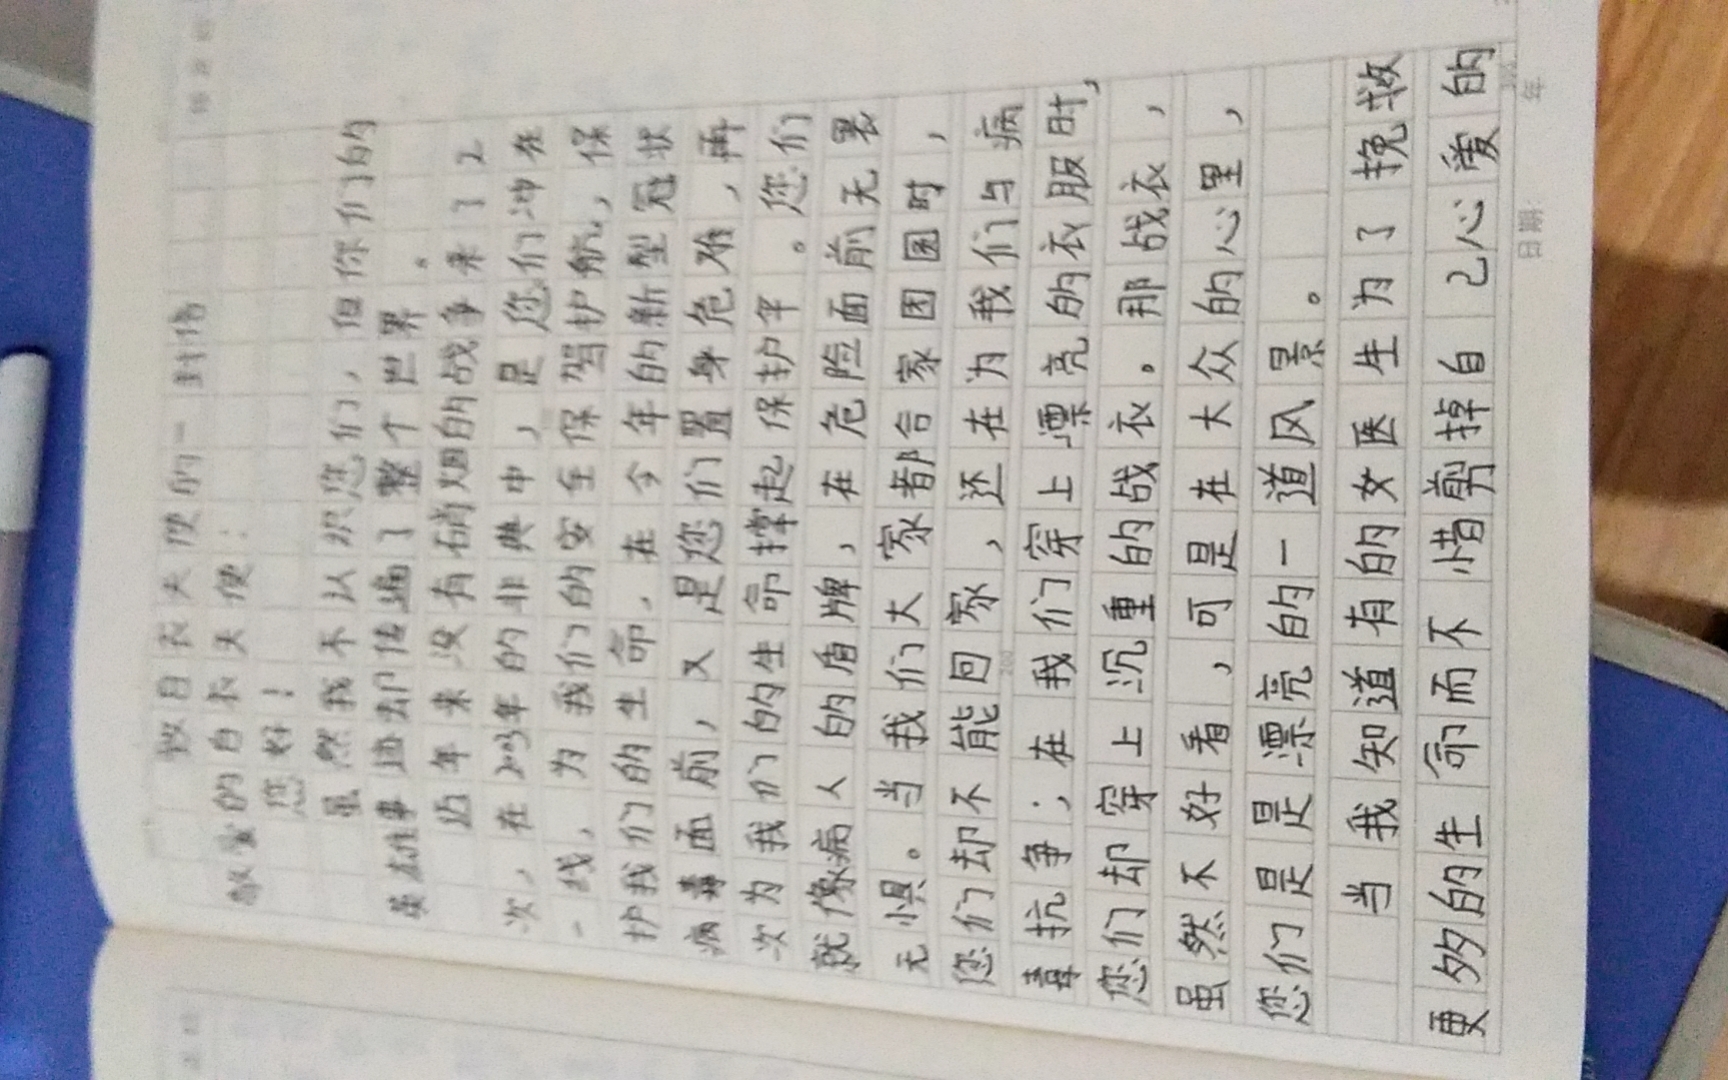 致白衣天使的一封信
敬爱的白衣天使：
您好！
虽然我不认识您们，但你们的
英雄事迹却传遍了整个世界。
近年来没有硝烟的战争来了2
次，在2003年的非典中，是您们冲在
一线，为我们的安全保驾护航，保
护我们的生命，在今年的新型冠状
病毒面前，又是您们置身危难，再
次为我们的生命撑起保护伞。您们
就像病人的盾牌，在危险面前无畏
无惧。当我们大家都合家团圆时，
您们却不能回家，还在为我们与病
毒抗争；在我们穿上漂亮的衣服时，
您们却穿上沉重的战衣。那战衣，
虽然不好看，可是在大众的心里，
您们是是漂亮的一道风景。
当我知道有的女医生为了挽救
更多的生命而不惜剪掉自己心爱的
200
日期：
年